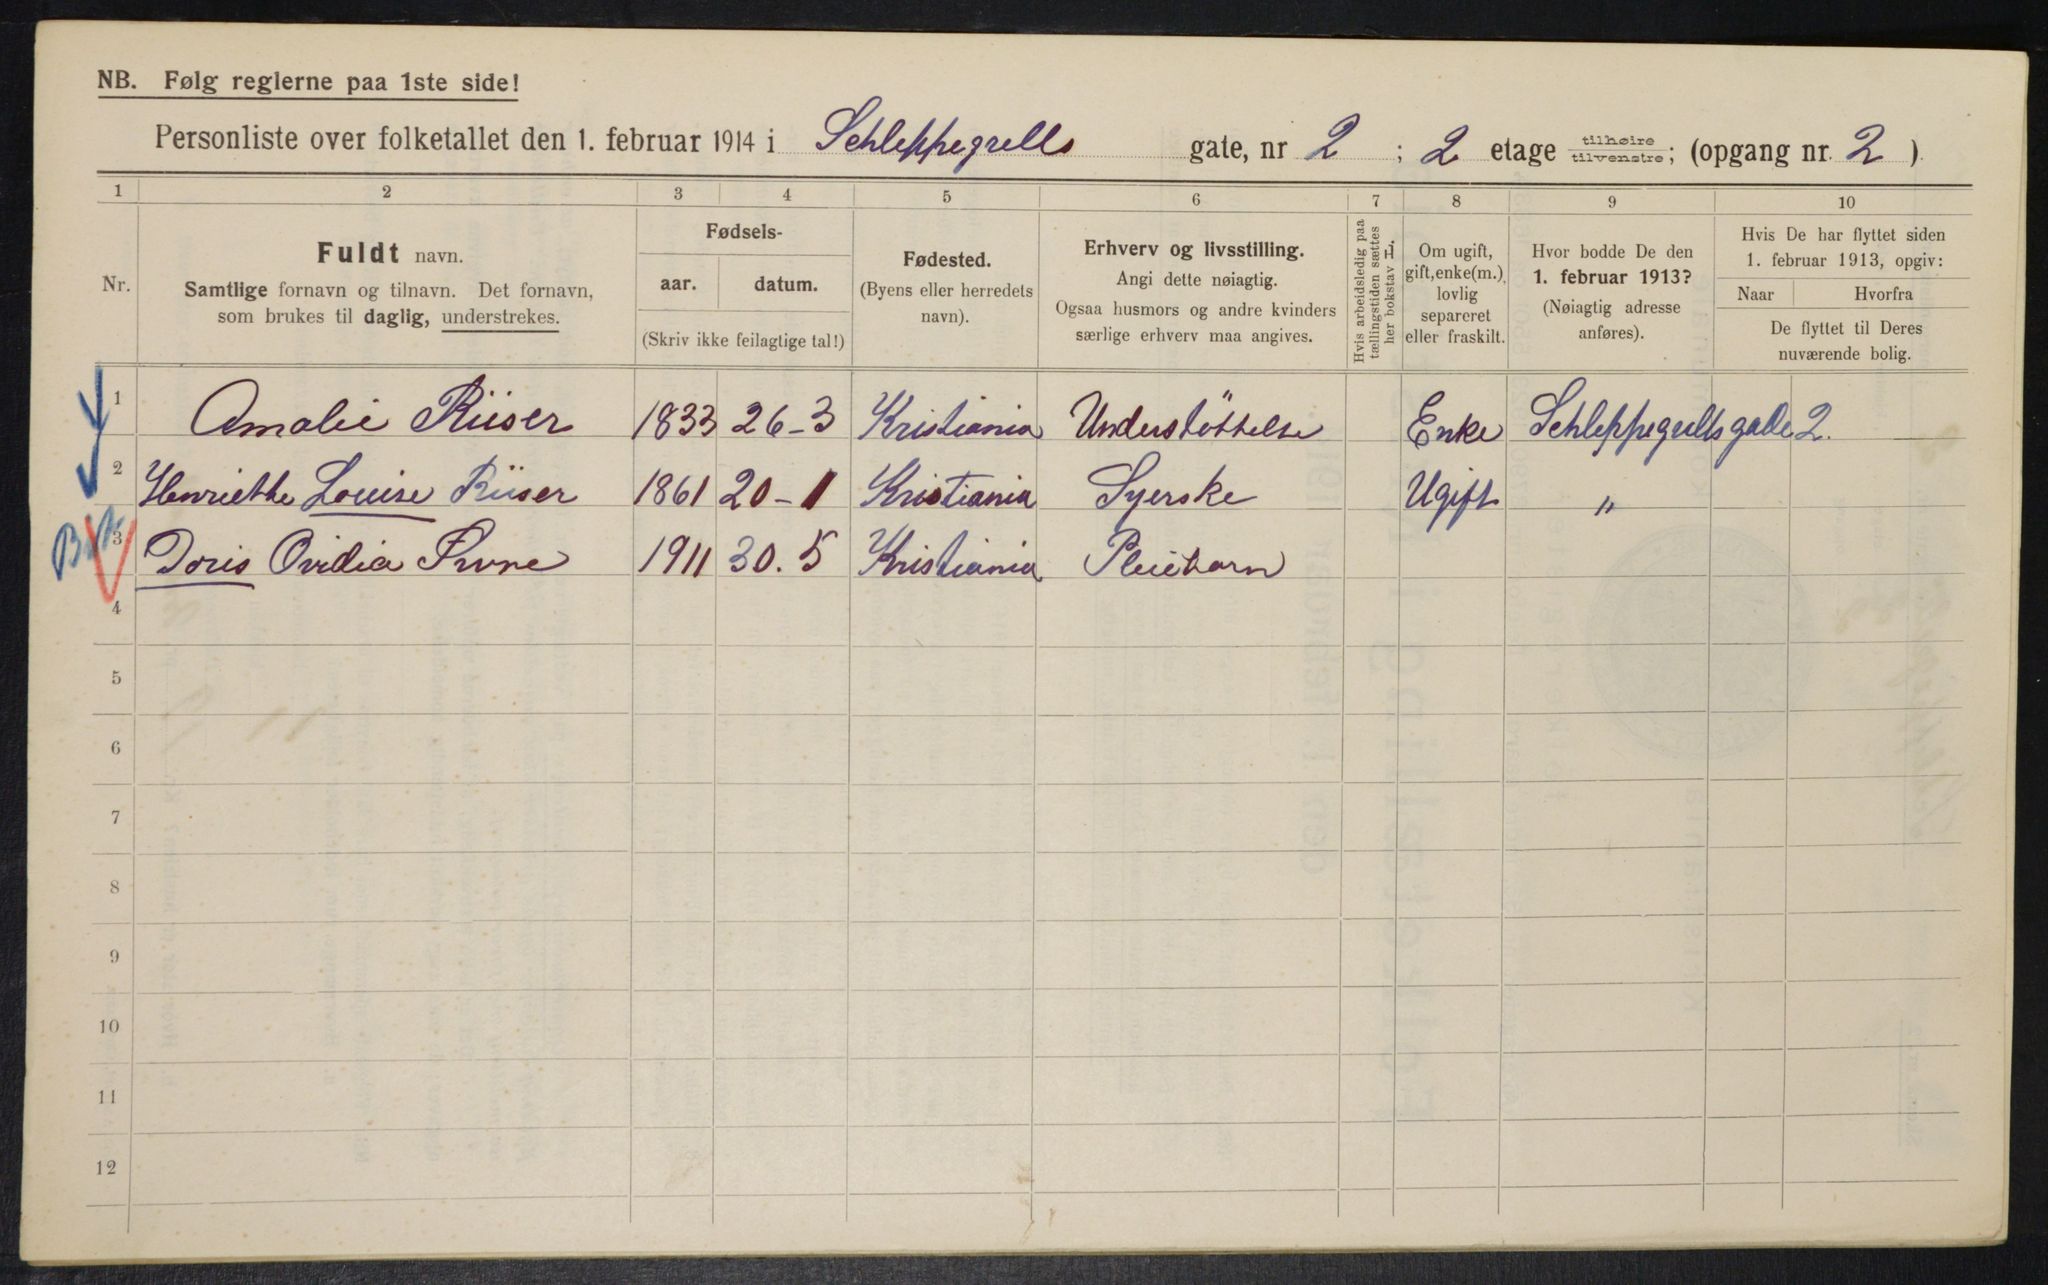 NB. Følg reglerne paa 1ste side!
Personliste over folketallet den 1. februar 1914 i Schleppegrells gate, nr 2 ; 2 etage tilhøire tilvenstre; (opgang nr. 2 )
1 2 3 4 5 6 7 8 9 10
Nr.
Fuldt navn.
Samtlige fornavn og tilnavn. Det fornavn,
som brukes til daglig, understrekes.
Fødsels-
aar. datum.
(Skriv ikke feilagtige tal!)
Fødested.
(Byens eller herredets
navn).
Erhverv og livsstilling.
Angi dette nøiagtig.
Ogsaa husmors og andre kvinders
særlige erhverv maa angives.
Hvis arbeidsledig paa
tællingstiden sættes
her bokstav L.
Om ugift,
gift, enke(m.),
lovlig
separeret
eller fraskilt.
Hvor bodde De den
1. februar 1913?
(Nøiagtig adresse
anføres).
Hvis De har flyttet siden
1. februar 1913, opgiv:
Naar Hvorfra
De flyttet til Deres
nuværende bolig.
1 Amalie Riiser 1833 26-3 Kristiania Understöttelse Enke Schleppegrellsgade 2.
2 Henriette Louise Riiser 1861 20-1 Kristiania Syerske Ugift "
3 Doris Ovidia 1911 30.5 Kristiania Pleiebarn
4
5
6
7
8
9
10
11
12